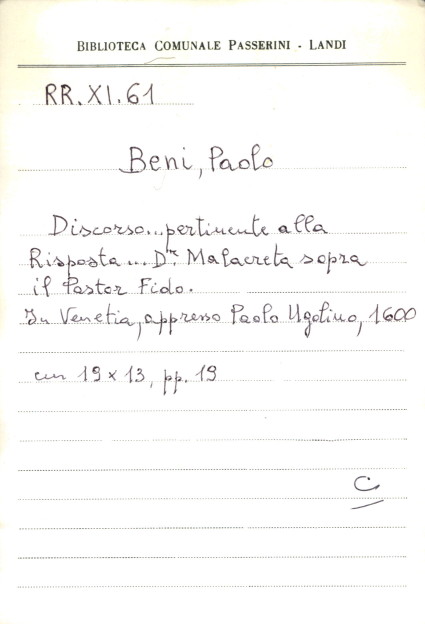 BIBLIOTECA COMUNALE PASSERINI - LANDI
RR.XI.61
Beni, Paolo
Discorso...pertinente alla
Risposta... D.re Malacreta sopra
il Pastor Fido.
In Venetia, appresso Paolo Ugolino, 1600
cm 19 x 13, pp. 19
C.